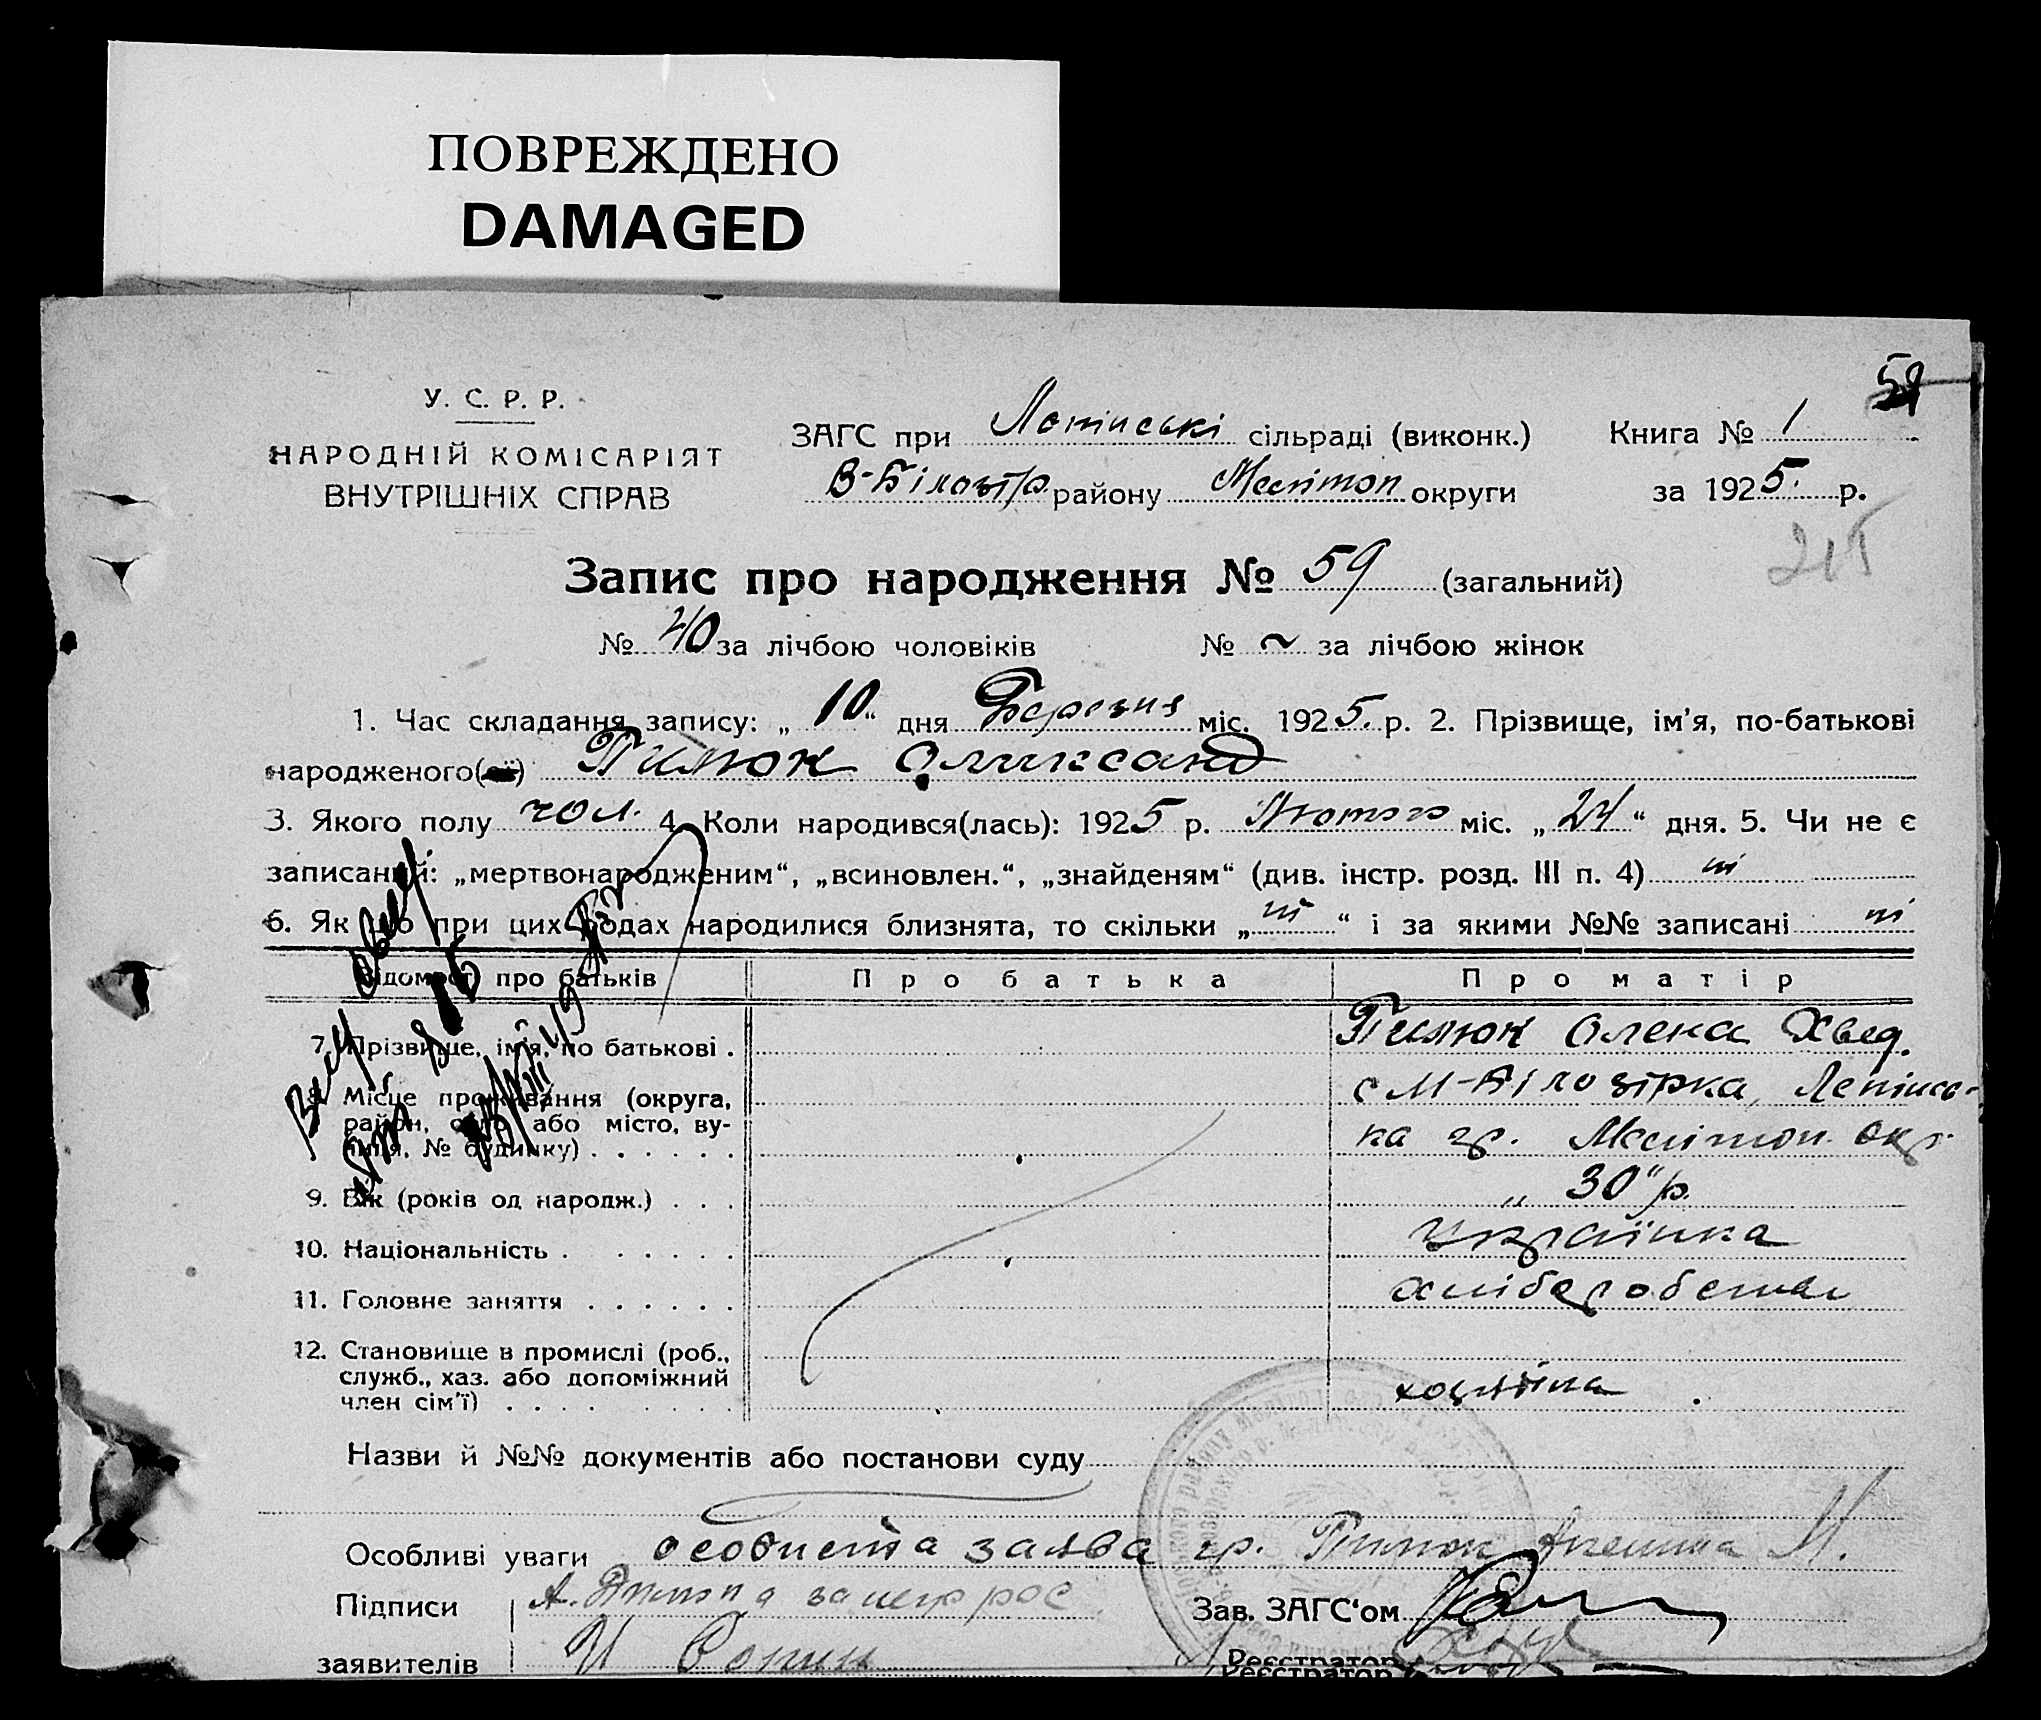 ПОВРЕЖДЕНО
DAMAGED
59
У. С. Р. Р.
НАРОДНІЙ КОМІСАРІЯТ
ВНУТРІШНІХ СПРАВ
ЗАГС при сільраді (виконк.)
В-Білозір. району Меліто́п округи
Книга № 1
за 1925. р.
215
Запис про народження № 59 (загальний)
№ 40 за лічбою чоловіків № ~ за лічбою жінок
1. Час складання запису: „ 10 “ дня Березня міс. 1925. р. 2. Прізвище, ім'я, по-батькові
народженого( ) Пилюк Олександ
3. Якого полу чол. 4. Коли народився(лась): 1925 р. Лютого міс. „ 24 “ дня. 5. Чи не є
записаний: „мертвонародженим“, „всиновлен.“, „знайденям“ (див. інстр. розд. III п. 4) ні
6. Як що при цих родах народилися близнята, то скільки „ ні “ і за якими №№ записані ні
Відомості про батьків Про батька Про матір
7. Прізвище, ім'я, по батькові . Пилюк Олена Хвед.
8. Місце проживання (округа,
район, село або місто, ву-
лиця, № будинку) . . . . . .
с М-Білозірка,
ка гр. Меліто́п. окр.
9. Вік (років од народж.) . . . „ 30 “ р.
10. Національність . . . . . . українка
11. Головне заняття . . . . . .
12. Становище в промислі (роб.,
служб., хаз. або допоміжний
член сім'ї) . . . . . . . . .
хазяйка
Назви й №№ документів або постанови суду
Особливі уваги особиста заява гр. Пилюк М.
Підписи
заявителів
Зав. ЗАГС‘ом
Реєстратор
Реєстратор